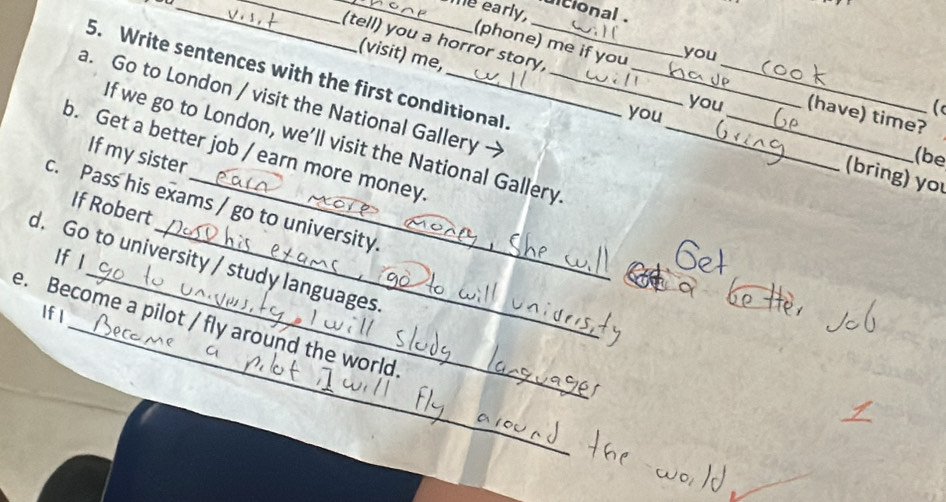 me early, will you cook
phone (phone) me if you have (have) time?
(tell) you a horror story, will you be (be
visit (visit) me, will you bring (bring) you
5. Write sentences with the first conditional.
a. Go to London / visit the National Gallery →
If we go to London, we'll visit the National Gallery.
b. Get a better job / earn more money.
If my sister earn more money, she will Get a better Job
c. Pass his exams / go to university.
If Robert pass his exams, go to will university
d. Go to university / study languages.
If I go to university, I will study languages
e. Become a pilot / fly around the world.
If I Become a pilot, I will fly around the world
1